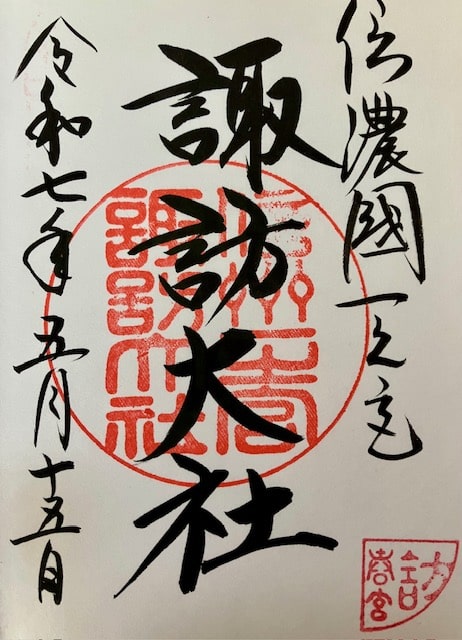 信濃國一之宮
諏訪大社
令和七年五月十五日
信州一宮
諏訪大社
訪
春宮